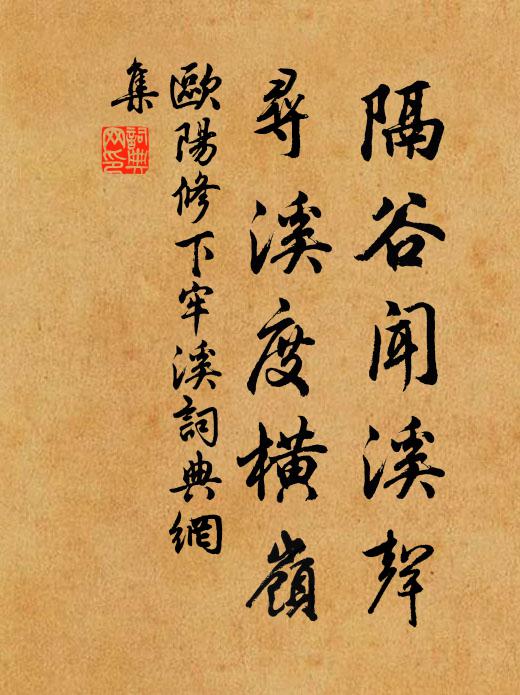 隔谷聞溪聲
尋溪度橫嶺
歐陽修下牢溪詞典網
集
詞典網印